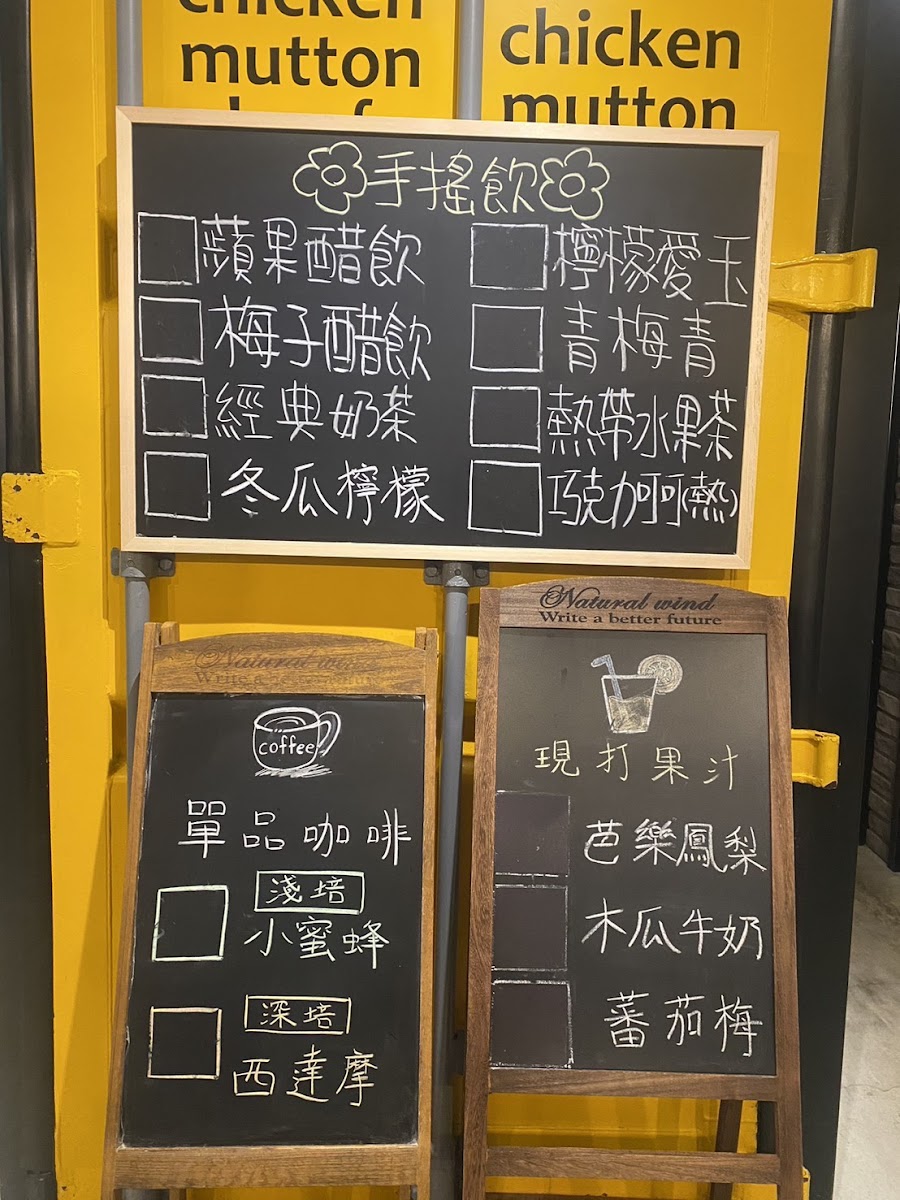 chicken
mutton
chicken
mutton
手搖飲
蘋果醋飲
梅子醋飲
經典奶茶
冬瓜檸檬
檸檬愛玉
青梅青
熱帶水果茶
巧克力可可(熱)
Natural wind
Write a better future
coffee
單品咖啡
淺培
小蜜蜂
深培
西達摩
Natural wind
Write a better future
現打果汁
芭樂鳳梨
木瓜牛奶
蕃茄梅